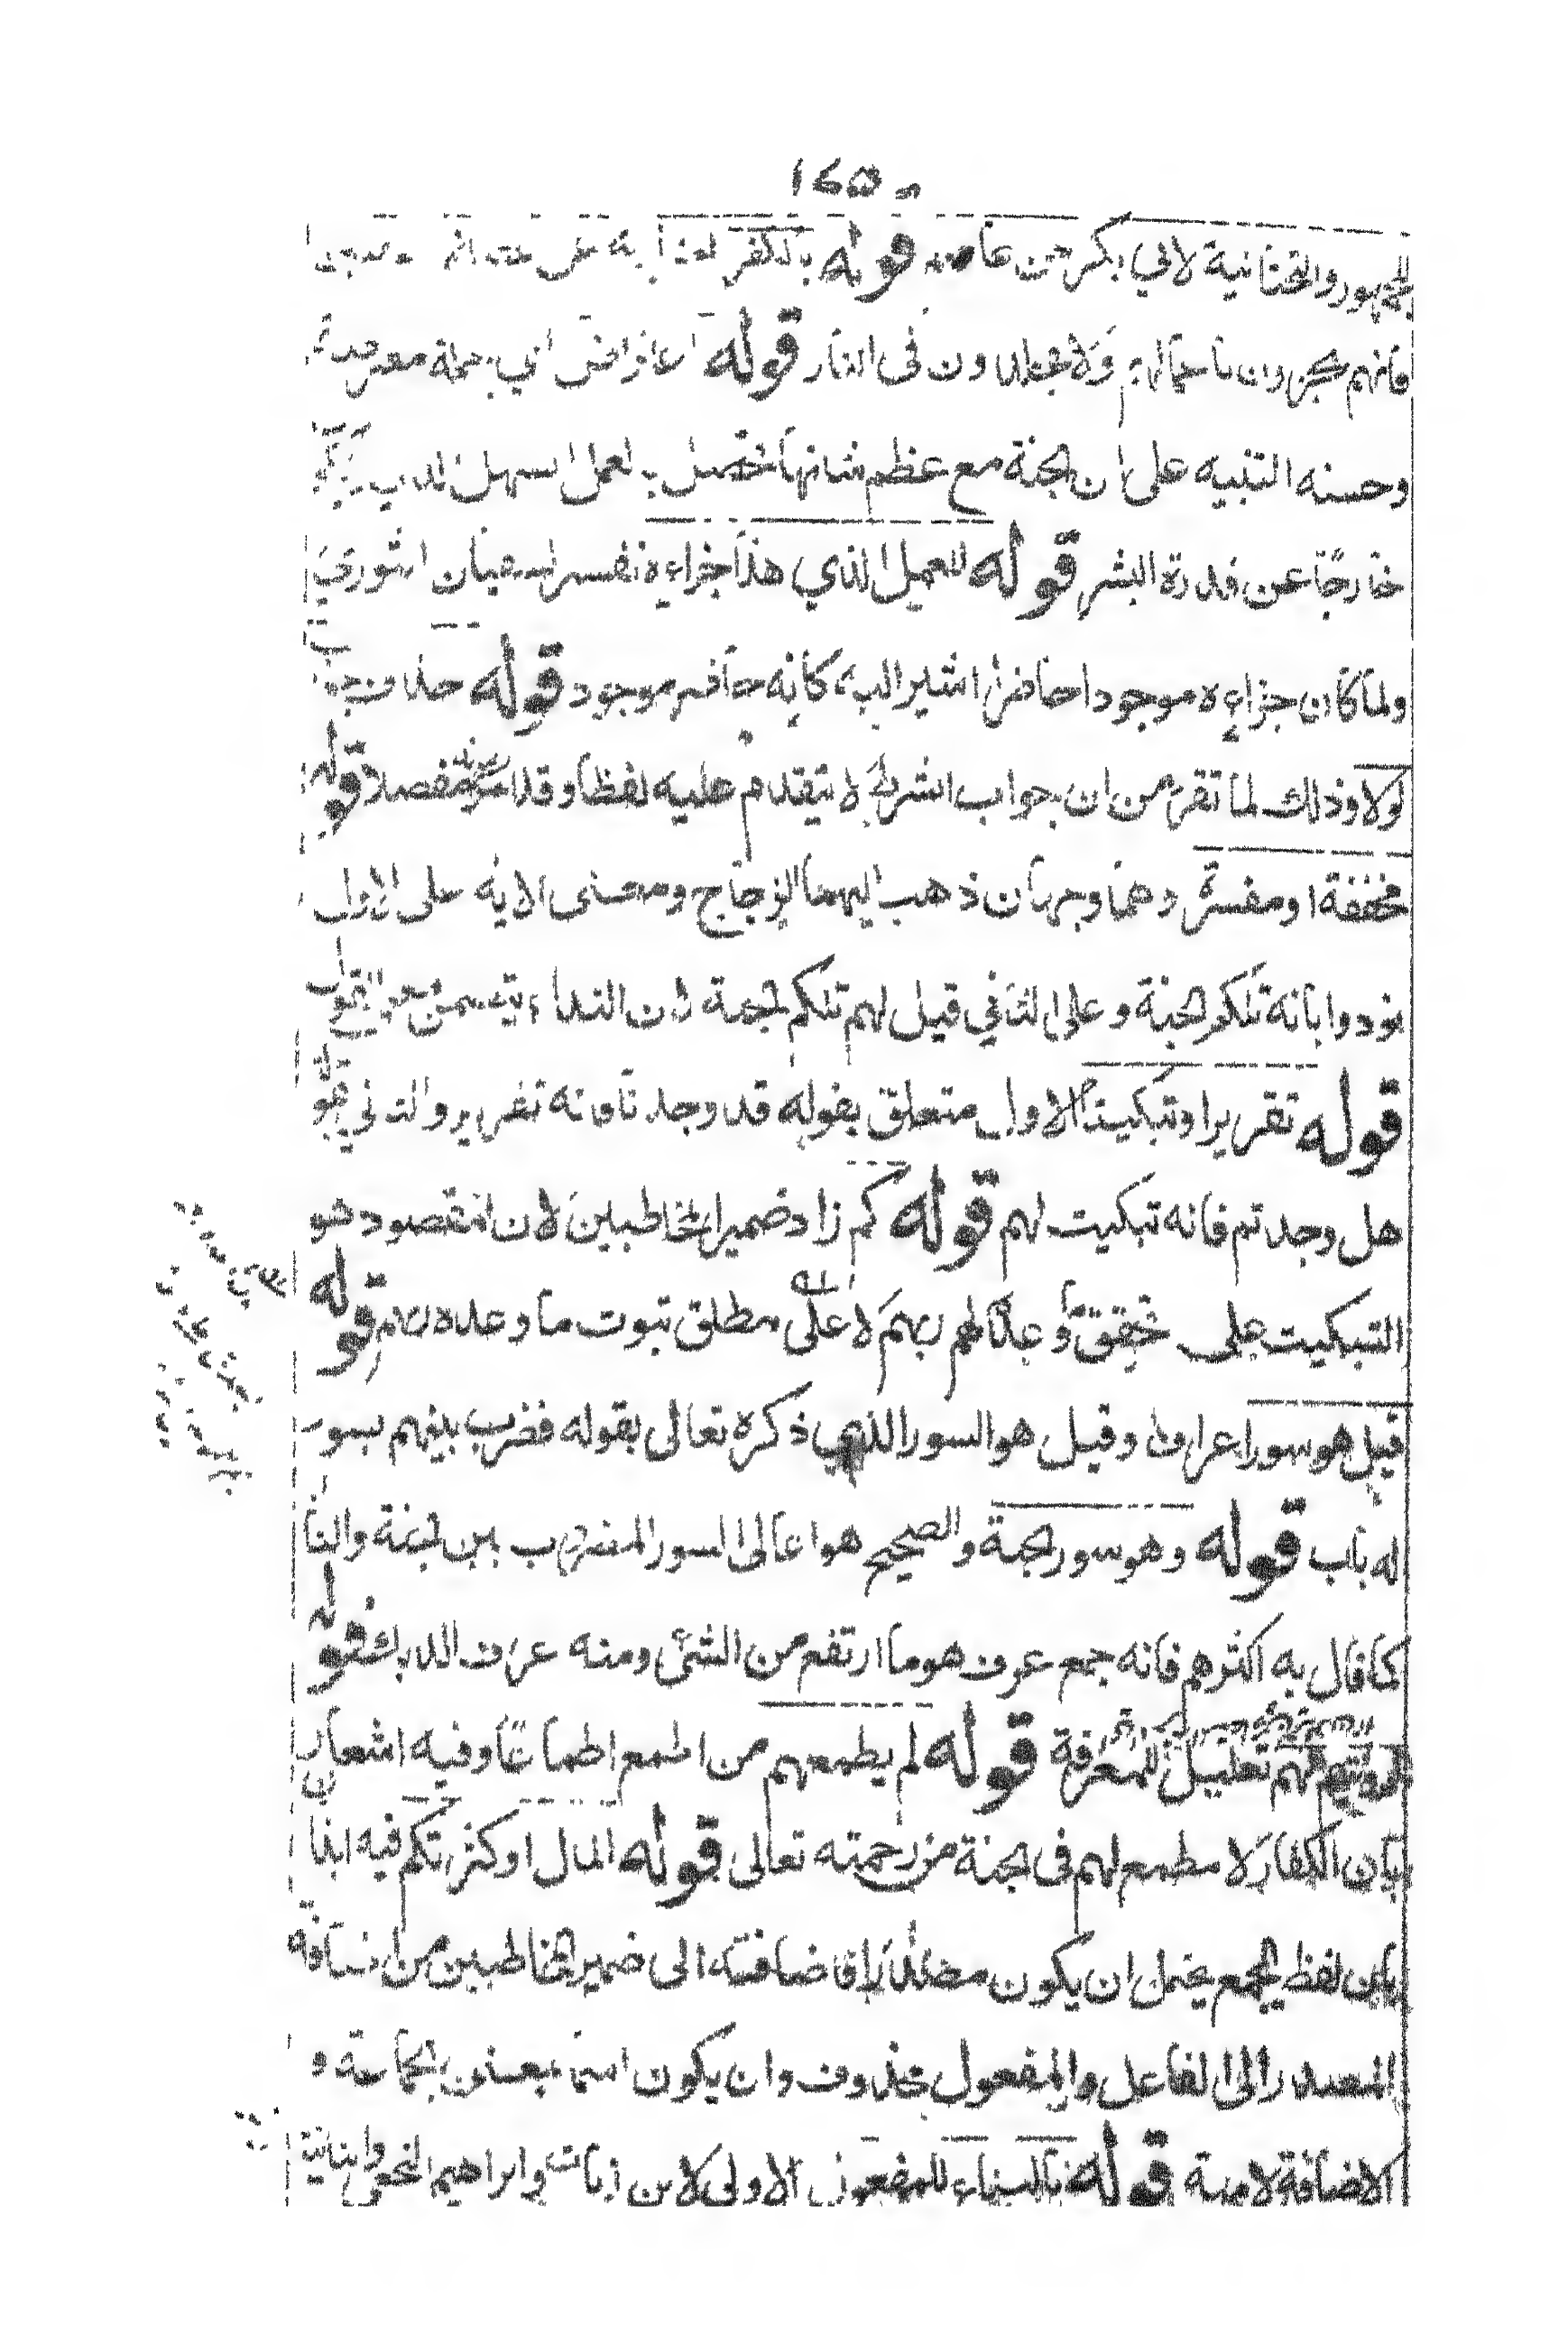 ١٤٥
للجمهور والتحتانية لابي بكر عن عاصم قوله بالكفر
فانهم يجزون باعمالهم ولا يخلدون فى النار قوله اعتراض اي جملة معترضة
وحسنه التنبيه على ان الجنة مع عظم شانها تحصل بالعمل السهل الذي
خارجا عن قدرة البشر قوله للعمل الذي هذا جزاءه تفسير لسفيان الثوري
ولما كان جزاءه موجودا حاضرا اشير اليه كانه حاضر موجود قوله حذف جواب
لولا وذلك لما تقرر من ان جواب الشرط لا يتقدم عليه لفظا وقد مر مفصلا قوله
مخففة او مفسرة وهما وجهان ذهب اليهما الزجاج ومعنى الاية على الاول
نودوا بانه تلكم الجنة وعلى الثاني قيل لهم تلكم الجنة لان النداء يتضمن معنى القول
قوله تقريرا وتبكيتا الاول متعلق بقوله قد وجدنا فانه تقرير والثاني بقوله
هل وجدتم فانه تبكيت لهم قوله كم زاد ضمير المخاطبين لان المقصود هو
التبكيت على تحقق ما وعد لهم ربهم لا على مطلق ثبوت ما وعده ربهم قوله
قيل هو سور اعراف وقيل هو السور الذي ذكره تعالى بقوله فضرب بينهم بسور
له باب قوله وهو سور الجنة والصحيح هو اعالى السور المضروب بين الجنة والنار
كما قال به اكثرهم فانه جمع عرف هو ما ارتفع من الشئ ومنه عرف الديك قوله
لهم تعليل للمعرفة قوله لم يطمعهم من اطمع اطماعا وفيه اشعار
بان الكفار لا مطمع لهم فى الجنة من رحمته تعالى قوله المال او كثرتكم فيه ايذان
بان لفظ الجمع يحتمل ان يكون مصدرا فاضافته الى ضمير المخاطبين من اضافة
المصدر الى الفاعل والمفعول محذوف وان يكون اسما بمعنى الجماعة و
الاضافة لامية قوله بالبناء للمفعول الاولى لابن وابراهيم النخعى والثانية